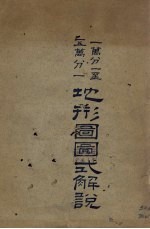 一萬分一至
五萬分一
地形圖圖式解說